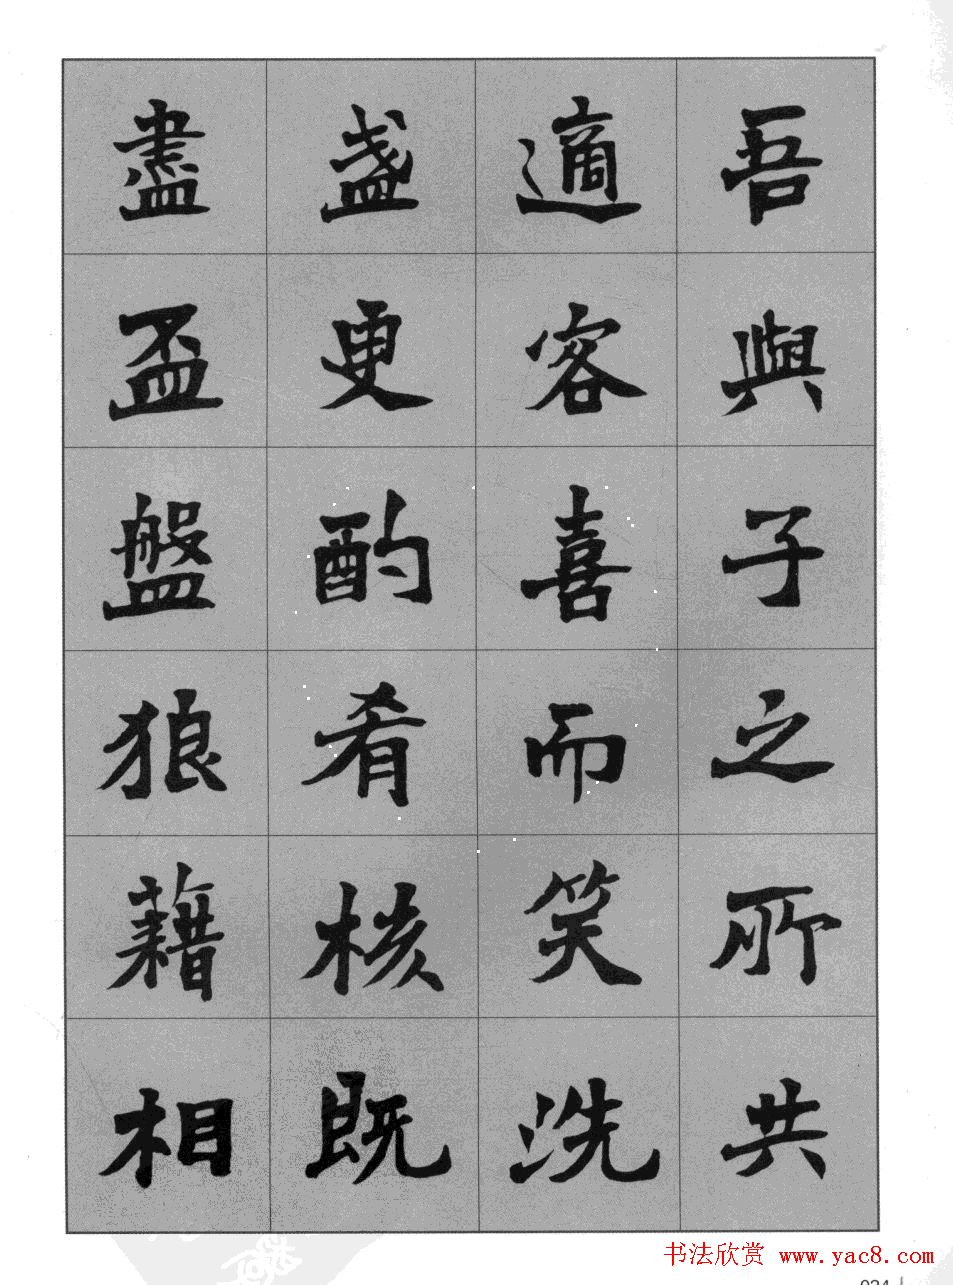 吾與子之所共
適客喜而笑洗
盞更酌肴核既
盡盃盤狼藉相
书法欣赏 www.yac8.com